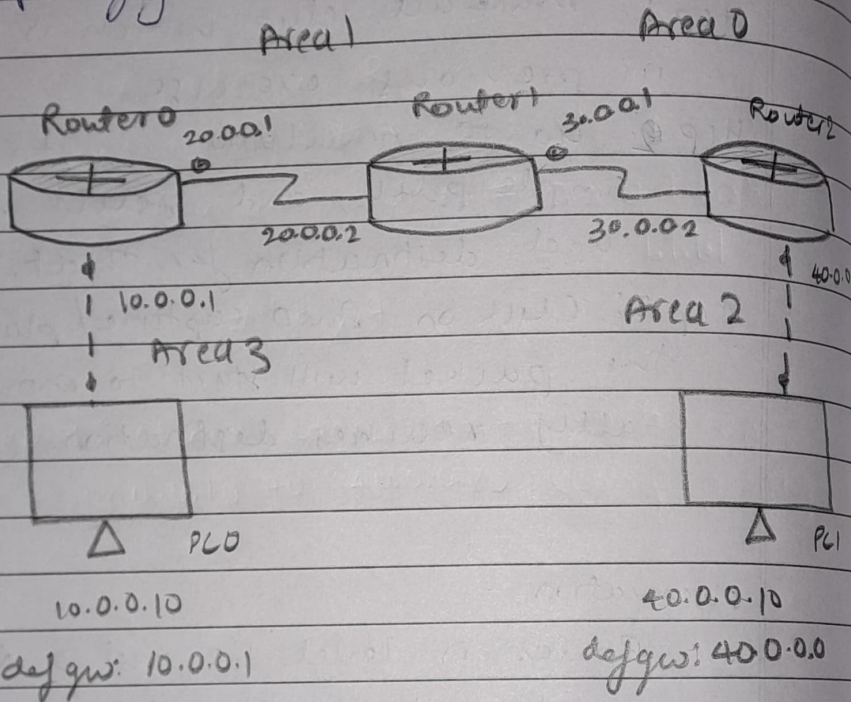 Area 1
Area 0
Router0
20.0.0.1
Router1
30.0.0.1
Router2
20.0.0.2
30.0.0.2
10.0.0.1
40.0.0
Area 3
Area 2
PC0
PC1
10.0.0.10
40.0.0.10
def gw: 10.0.0.1
def gw: 40.0.0.0